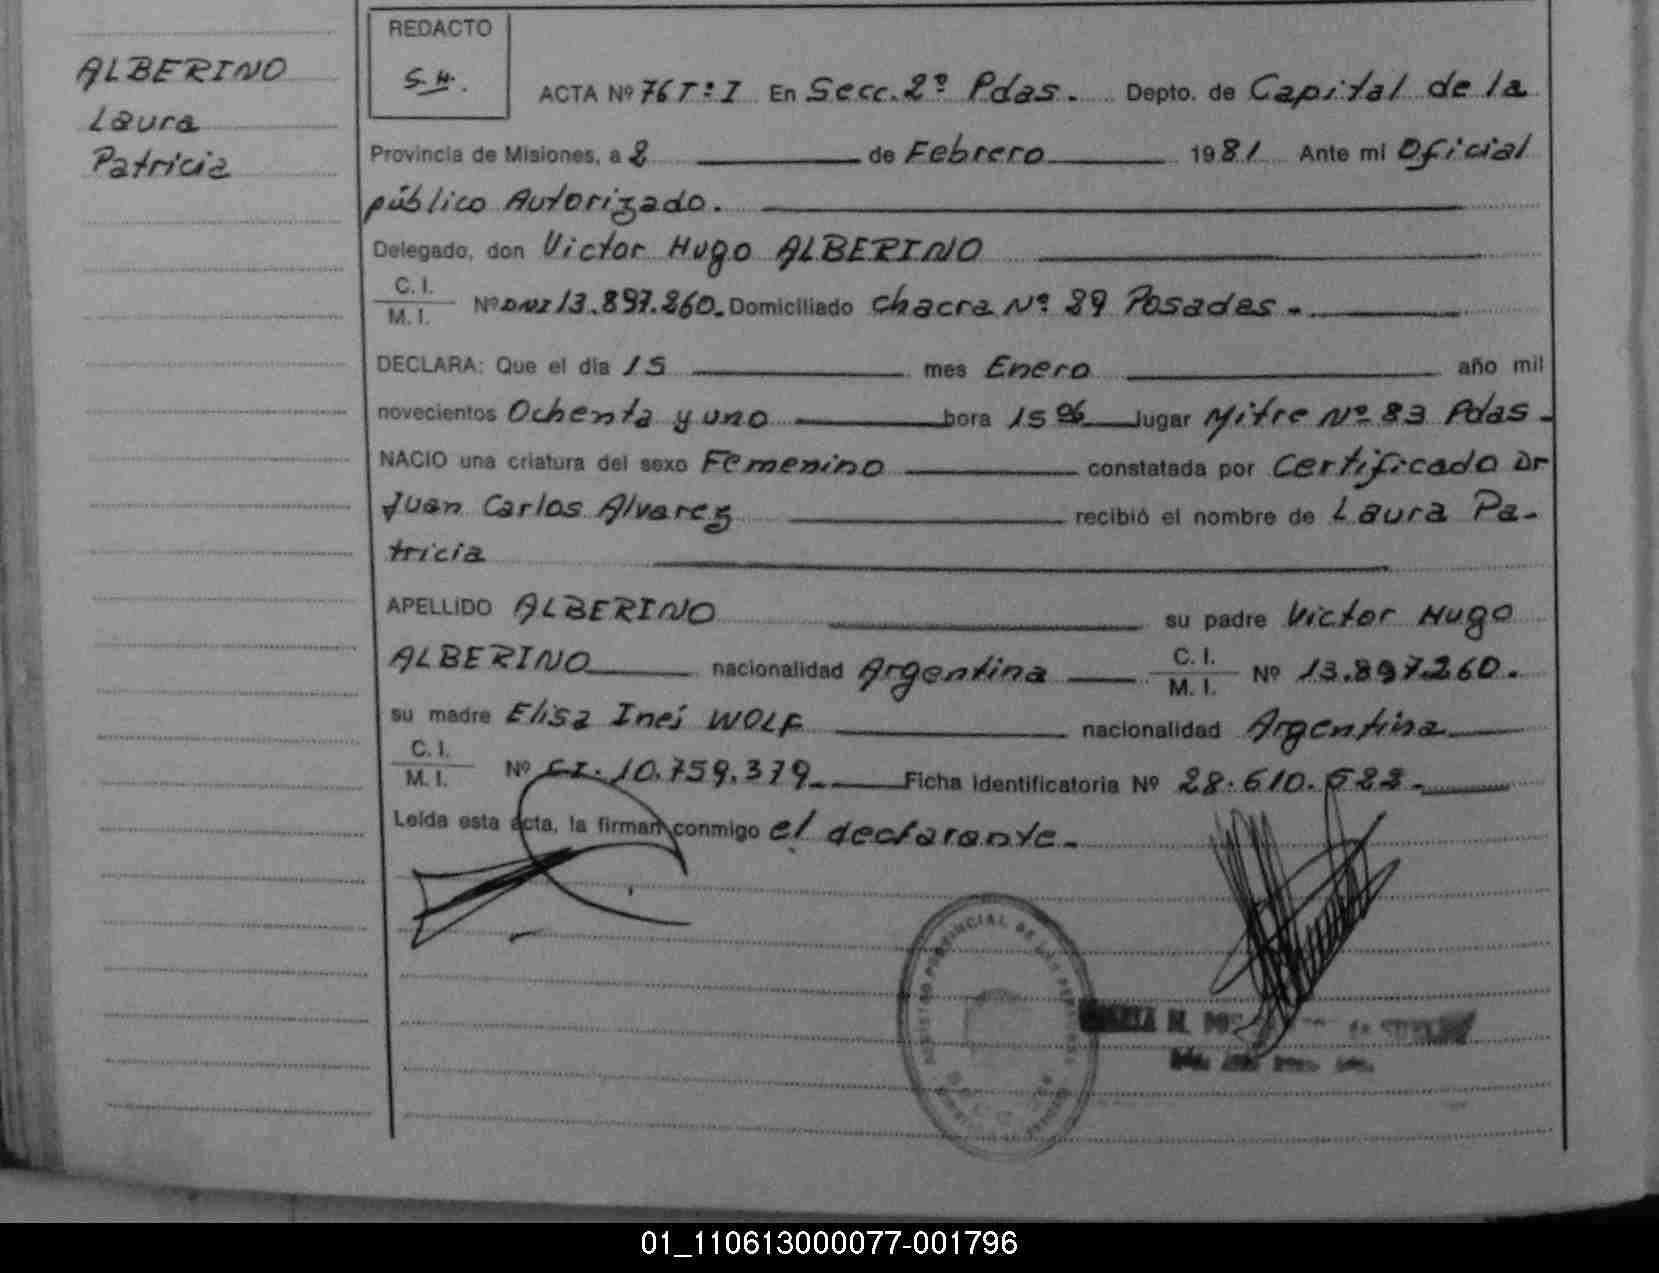 ALBERINO
Laura
Patricia
REDACTO
S.H.
ACTA Nº 76 Tº I En Secc. 2º Pdas. Depto. de Capital de la
Provincia de Misiones, a 2 de Febrero 1981 Ante mi Oficial
público Autorizado.
Delegado, don Victor Hugo ALBERINO
C. I.
M. I. Nº DNI 13.897.260. Domiciliado Chacra Nº 89 Posadas.-
DECLARA: Que el día 15 mes Enero año mil
novecientos Ochenta y uno hora 15 06 lugar Mitre Nº 83 Pdas.
NACIO una criatura del sexo Femenino constatada por Certificado Dr
Juan Carlos Alvarez recibió el nombre de Laura Pa-
tricia
APELLIDO ALBERINO su padre Victor Hugo
ALBERINO nacionalidad Argentina C. I.
M. I. Nº 13.897.260.
su madre Elisa Ines WOLF nacionalidad Argentina
C. I.
M. I. Nº CI. 10.759.379 Ficha Identificatoria Nº 28.610.522.-
Leída esta acta, la firman conmigo el declarante.-
REGISTRO PROVINCIAL DE LAS PERSONAS
01_110613000077-001796